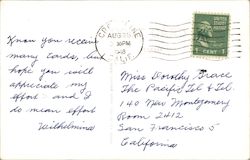 Know you receive
many cards, but
hope you will
appreciate my
effort - and I
do mean effort
Wilhelmina
AUG
PM
CALIF
1 CENT 1
Miss Dorothy Grace
The Pacific Tel & Tel.
140 New Montgomery
Room 2412
San Francisco 5
California